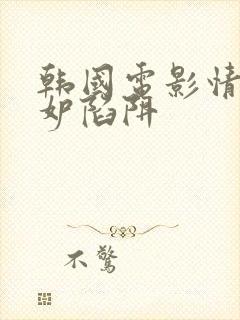 韩國電影情
妒陷阱
不驚